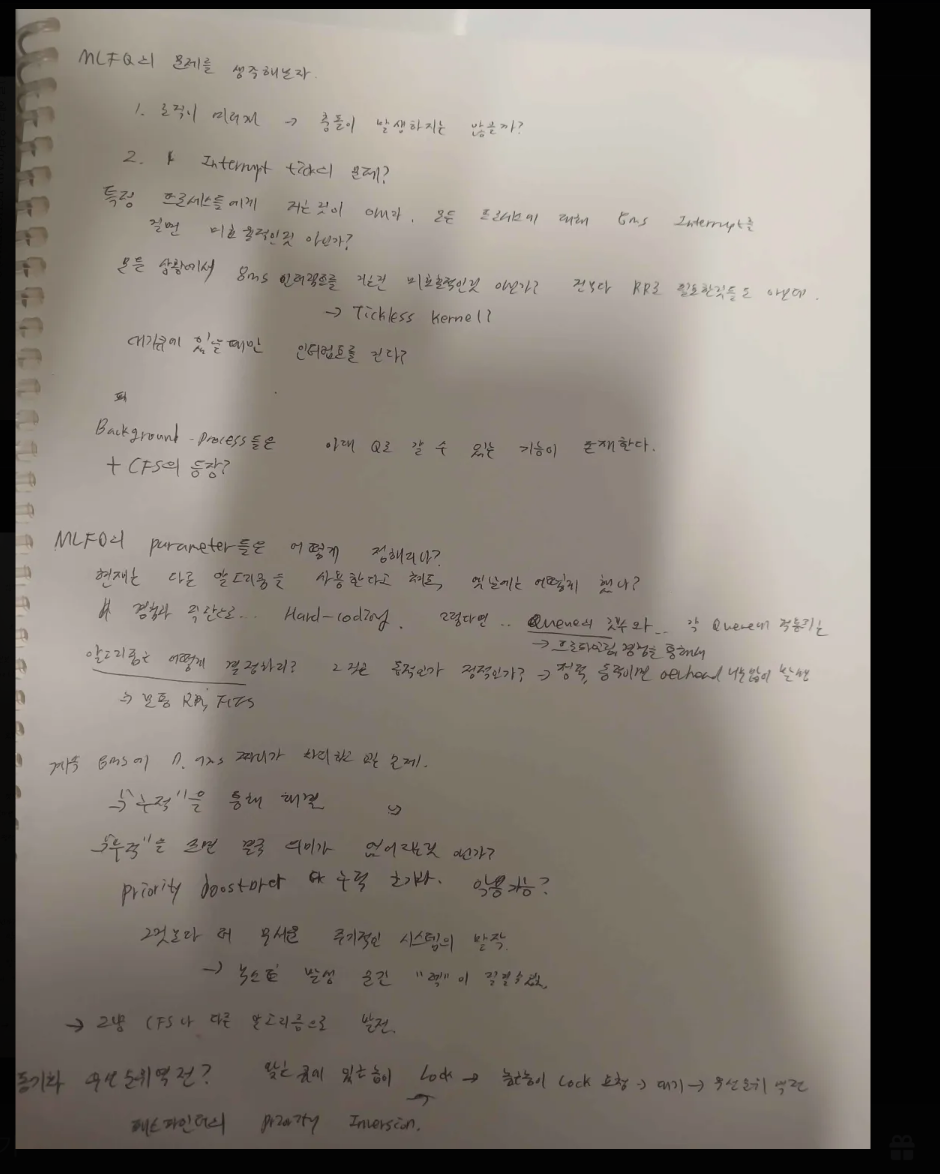 MLFQ의 문제를 생각해보자.
1. 로직이 → 충돌이 발생하지는 않을까?
2. Interrupt tick의 문제?
특정 프로세스들에게 거는것이 아니라, 모든 프로세스에 대해 8ms Interrupt를
걸면 비효율적인것 아닌가?
모든 상황에서 8ms 인터럽트를 거는건 비효율적인것 아닌가? 전부다 RR로 필요한것들도 아닌데.
→ Tickless Kernel?
대기큐에 있을때만 인터럽트를 건다?
Background-process들은 아래 Q로 갈 수 있는 기능이 존재한다.
+ CFS의 등장?
MLFQ의 parameter들은 어떻게 정해지나?
현재는 다른 알고리즘을 사용한다고 쳐도, 옛날에는 어떻게 했나?
경험과 직관으로... Hard-coding. 그렇다면.. Queue의 갯수와.. 각 Queue에 적용되는
→ 프로파일링, 경험을 통해서
알고리즘은 어떻게 결정하지? 그것은 동적인가 정적인가? → 정적, 동적이면 overhead 너무많이 발생
→ 보통 RR, FCFS
계속 8ms에 짜리가 처리하고 문제.
→ "누적"을 통해 해결
→ "누적"을 쓰면 결국 의미가 없어지는것 아닌가?
priority boost마다 누적 초기화. 악용가능?
그것보다 더 무서운 주기적인 시스템의 발작.
→ 부스트 발생 순간 "렉"이
→ 그냥 CFS나 다른 알고리즘으로 발전.
동기화 우선순위역전? 낮은 큐에 있는놈이 Lock → 높은놈이 Lock 요청 → 대기 → 우선순위 역전
패스파인더의 Priority Inversion.